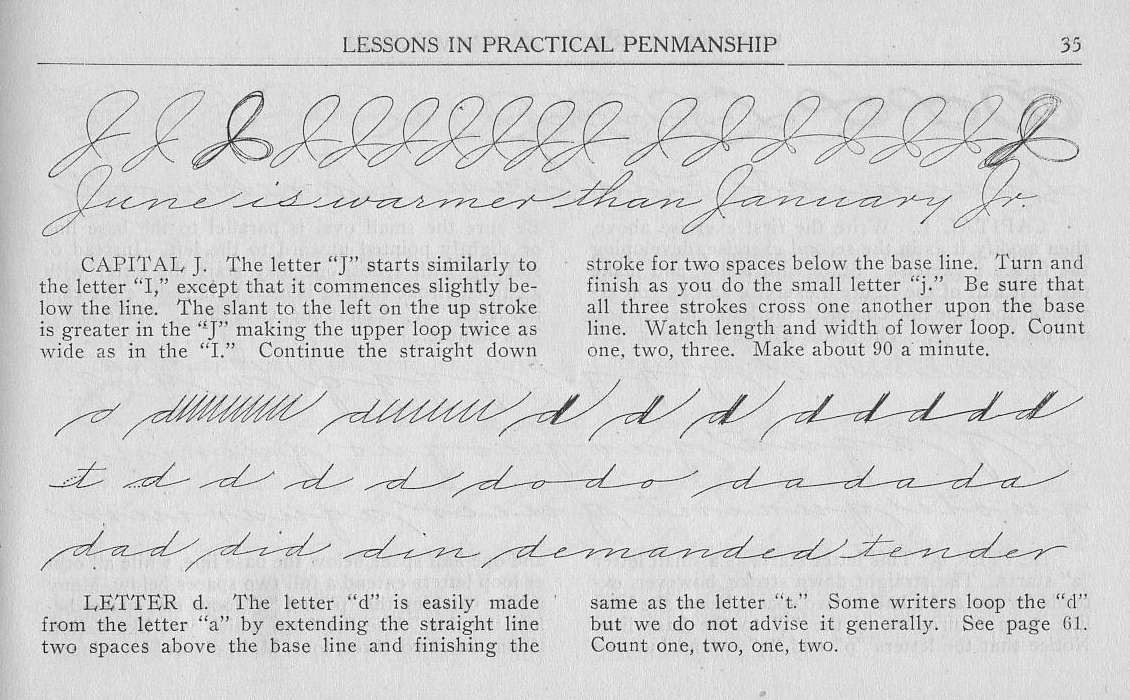 LESSONS IN PRACTICAL PENMANSHIP 35
J J J J J J J J J J J J J J J J J
June is warmer than January Jr.
CAPITAL J. The letter "J" starts similarly to
the letter "I," except that it commences slightly be-
low the line. The slant to the left on the up stroke
is greater in the "J" making the upper loop twice as
wide as in the "I." Continue the straight down
stroke for two spaces below the base line. Turn and
finish as you do the small letter "j." Be sure that
all three strokes cross one another upon the base
line. Watch length and width of lower loop. Count
one, two, three. Make about 90 a minute.
a d d d d d ddddd
t d d d d dodo dadada
dad did din demanded tender
LETTER d. The letter "d" is easily made
from the letter "a" by extending the straight line
two spaces above the base line and finishing the
same as the letter "t." Some writers loop the "d"
but we do not advise it generally. See page 61.
Count one, two, one, two.